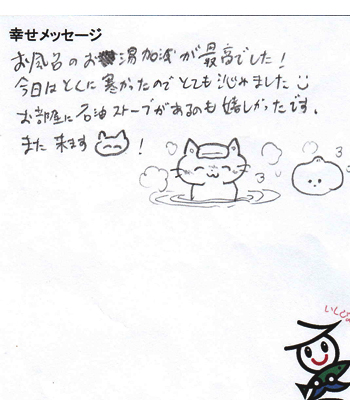 幸せメッセージ
お風呂のお湯加減が最高でした!
今日はとくに寒かったのでとても沁みました
お部屋に石油ストーブがあるのも嬉しかったです。
また来ます!